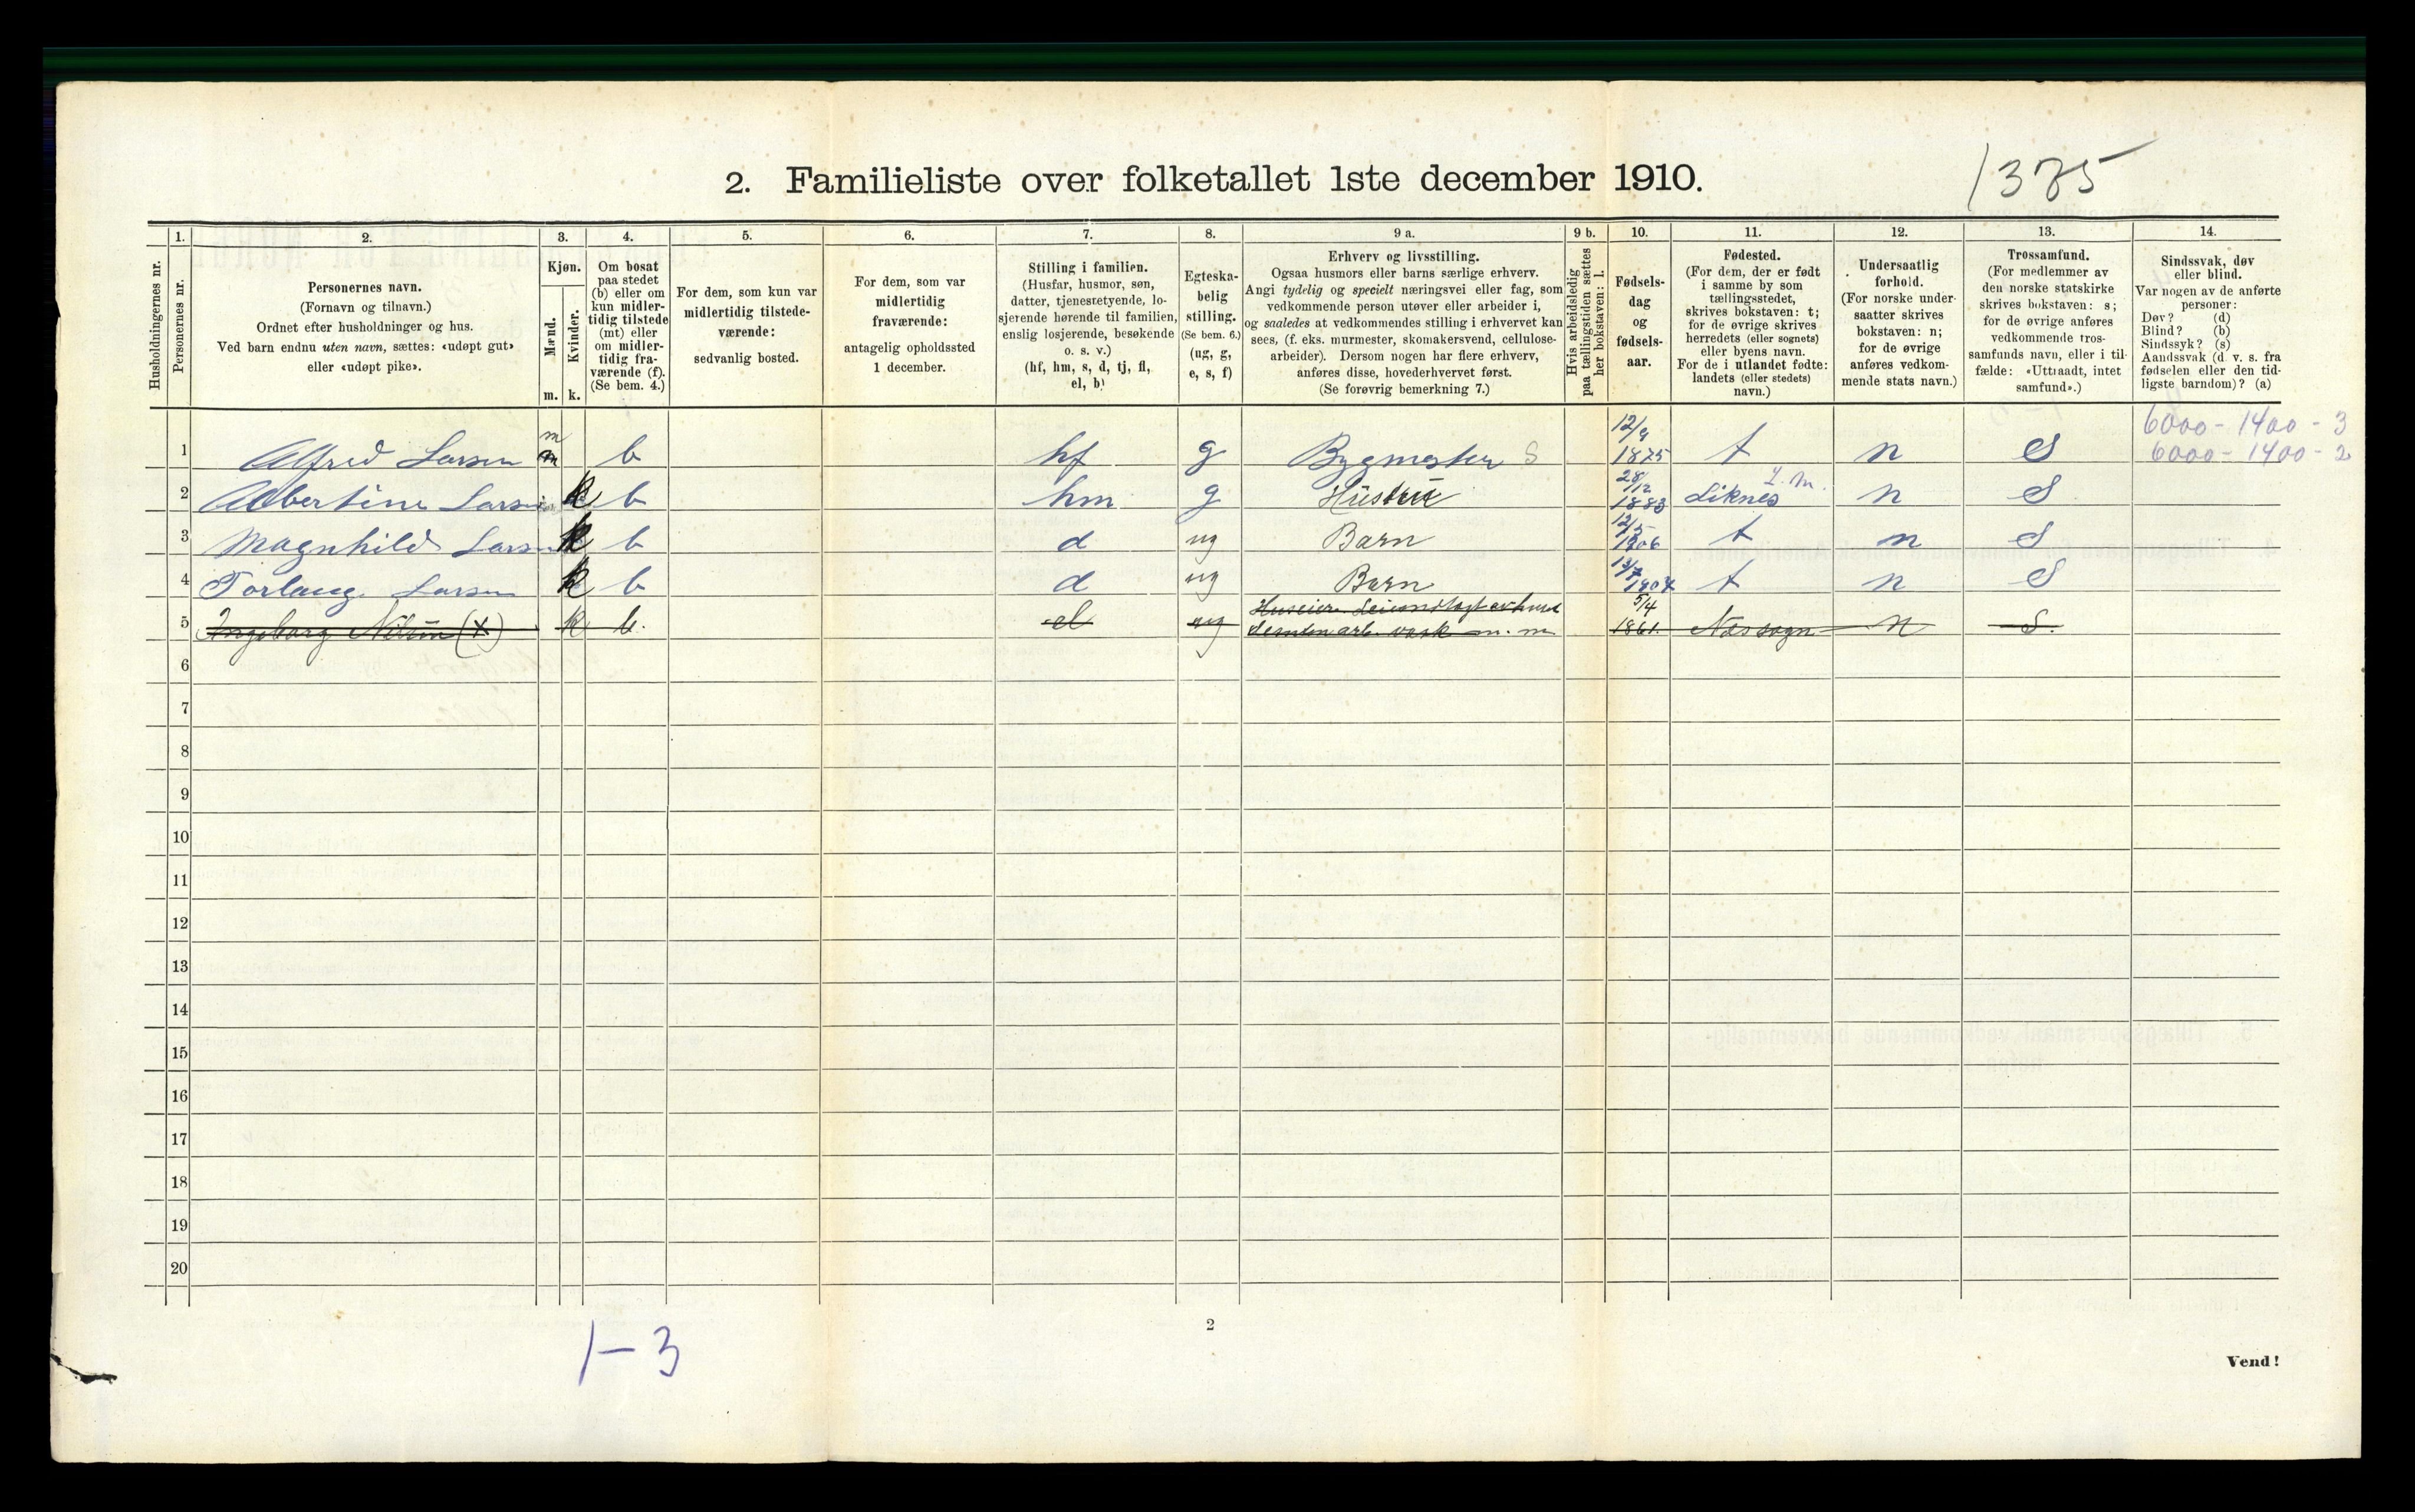 2. Familieliste over folketallet 1ste december 1910.
1375
Husholdningernes nr.
1.
Personernes nr.
2.
Personernes navn.
(Fornavn og tilnavn.)
Ordnet efter husholdninger og hus.
Ved barn endnu uten navn, sættes: «udøpt gut»
eller «udøpt pike».
3.
Kjøn.
Mænd.
Kvinder.
m. k.
4.
Om bosat
paa stedet
(b) eller om
kun midler-
tidig tilstede
(mt) eller
om midler-
tidig fra-
værende (f).
(Se bem. 4.)
5.
For dem, som kun var
midlertidig tilstede-
værende:
sedvanlig bosted.
6.
For dem, som var
midlertidig
fraværende:
antagelig opholdssted
1 december.
7.
Stilling i familien.
(Husfar, husmor, søn,
datter, tjenestetyende, lo-
sjerende hørende til familien,
enslig losjerende, besøkende
o. s. v.)
(hf, hm, s, d, tj, fl,
el, b)
8.
Egteska-
belig
stilling.
(Se bem. 6.)
(ug, g,
e, s, f)
9 a.
Erhverv og livsstilling.
Ogsaa husmors eller barns særlige erhverv.
Angi tydelig og specielt næringsvei eller fag, som
vedkommende person utøver eller arbeider i,
og saaledes at vedkommendes stilling i erhvervet kan
sees, (f. eks. murmester, skomakersvend, cellulose-
arbeider). Dersom nogen har flere erhverv,
anføres disse, hovederhvervet først.
(Se forøvrig bemerkning 7.)
9 b.
Hvis arbeidsledig
paa tællingstiden sættes
her bokstaven: l.
10.
Fødsels-
dag
og
fødsels-
aar.
11.
Fødested.
(For dem, der er født
i samme by som
tællingsstedet,
skrives bokstaven: t;
for de øvrige skrives
herredets (eller sognets)
eller byens navn.
For de i utlandet fødte:
landets (eller stedets)
navn.)
12.
Undersaatlig
forhold.
(For norske under-
saatter skrives
bokstaven: n;
for de øvrige
anføres vedkom-
mende stats navn.)
13.
Trossamfund.
(For medlemmer av
den norske statskirke
skrives bokstaven: s;
for de øvrige anføres
vedkommende tros-
samfunds navn, eller i til-
fælde: «Uttraadt, intet
samfund».)
14.
Sindssvak, døv
eller blind.
Var nogen av de anførte
personer:
Døv? (d)
Blind? (b)
Sindssyk? (s)
Aandssvak (d. v. s. fra
fødselen eller den tid-
ligste barndom)? (a)
6000 - 1400 - 3
6000 - 1400 - 2
1 Alfred Larsen m m b hf g Bygmester S 12/9 1875 t n S
2 Albertine Larsen k b hm g Hustru 28/12 1883 Liknes L. M. n S
3 Magnhild Larsen k b d ug Barn 12/5 1906 t n S
4 Torlaug Larsen k b d ug Barn 13/7 1907 t n S
5 Ingeborg Nilsen (X) k b. el ug 5/4 1861. Nes sogn n S.
6
7
8
9
10
11
12
13
14
15
16
17
18
19
20
1-3
2
Vend!